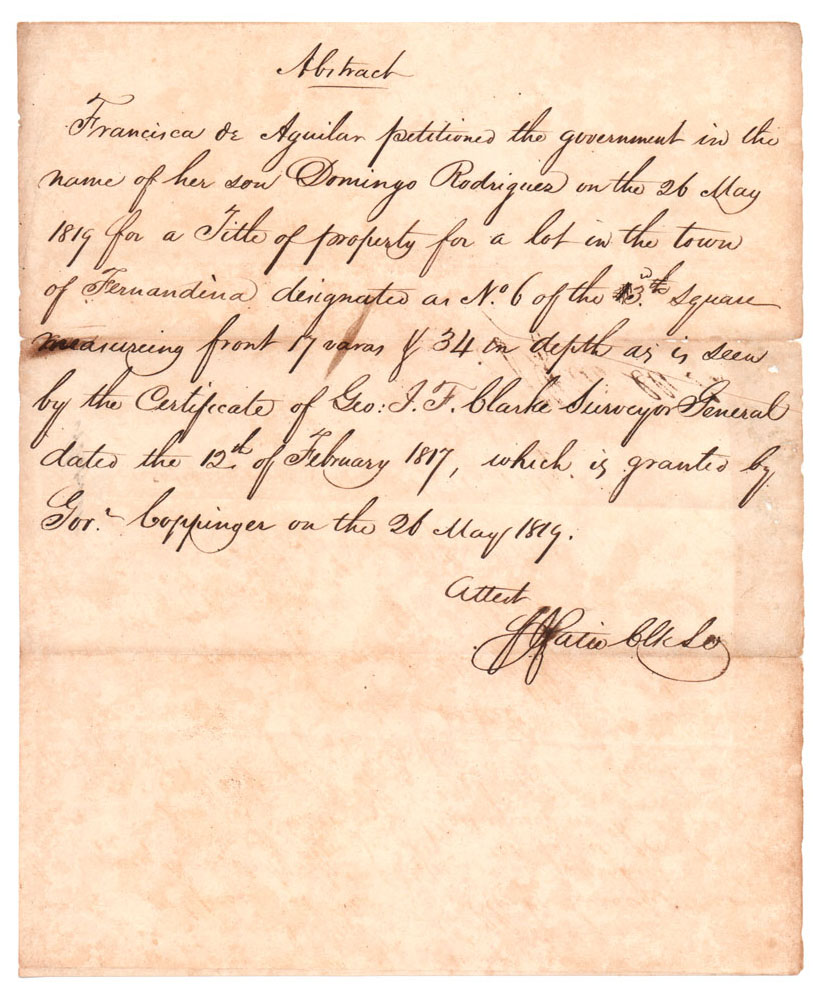 Abstract
Francisca de Aguilar petitioned the government in the
name of her son Domingo Rodriguez on the 26 May
1819 for a Title of property for a lot in the town
of Fernandina designated as No. 6 of the square
measureing front 17 varas & 34 in depth as is seen
by the Certificate of Geo: J. F. Clarke Surveyor General
dated the 12th of February 1817, which is granted by
Gor. Coppinger on the 26 May 1819.
Attest